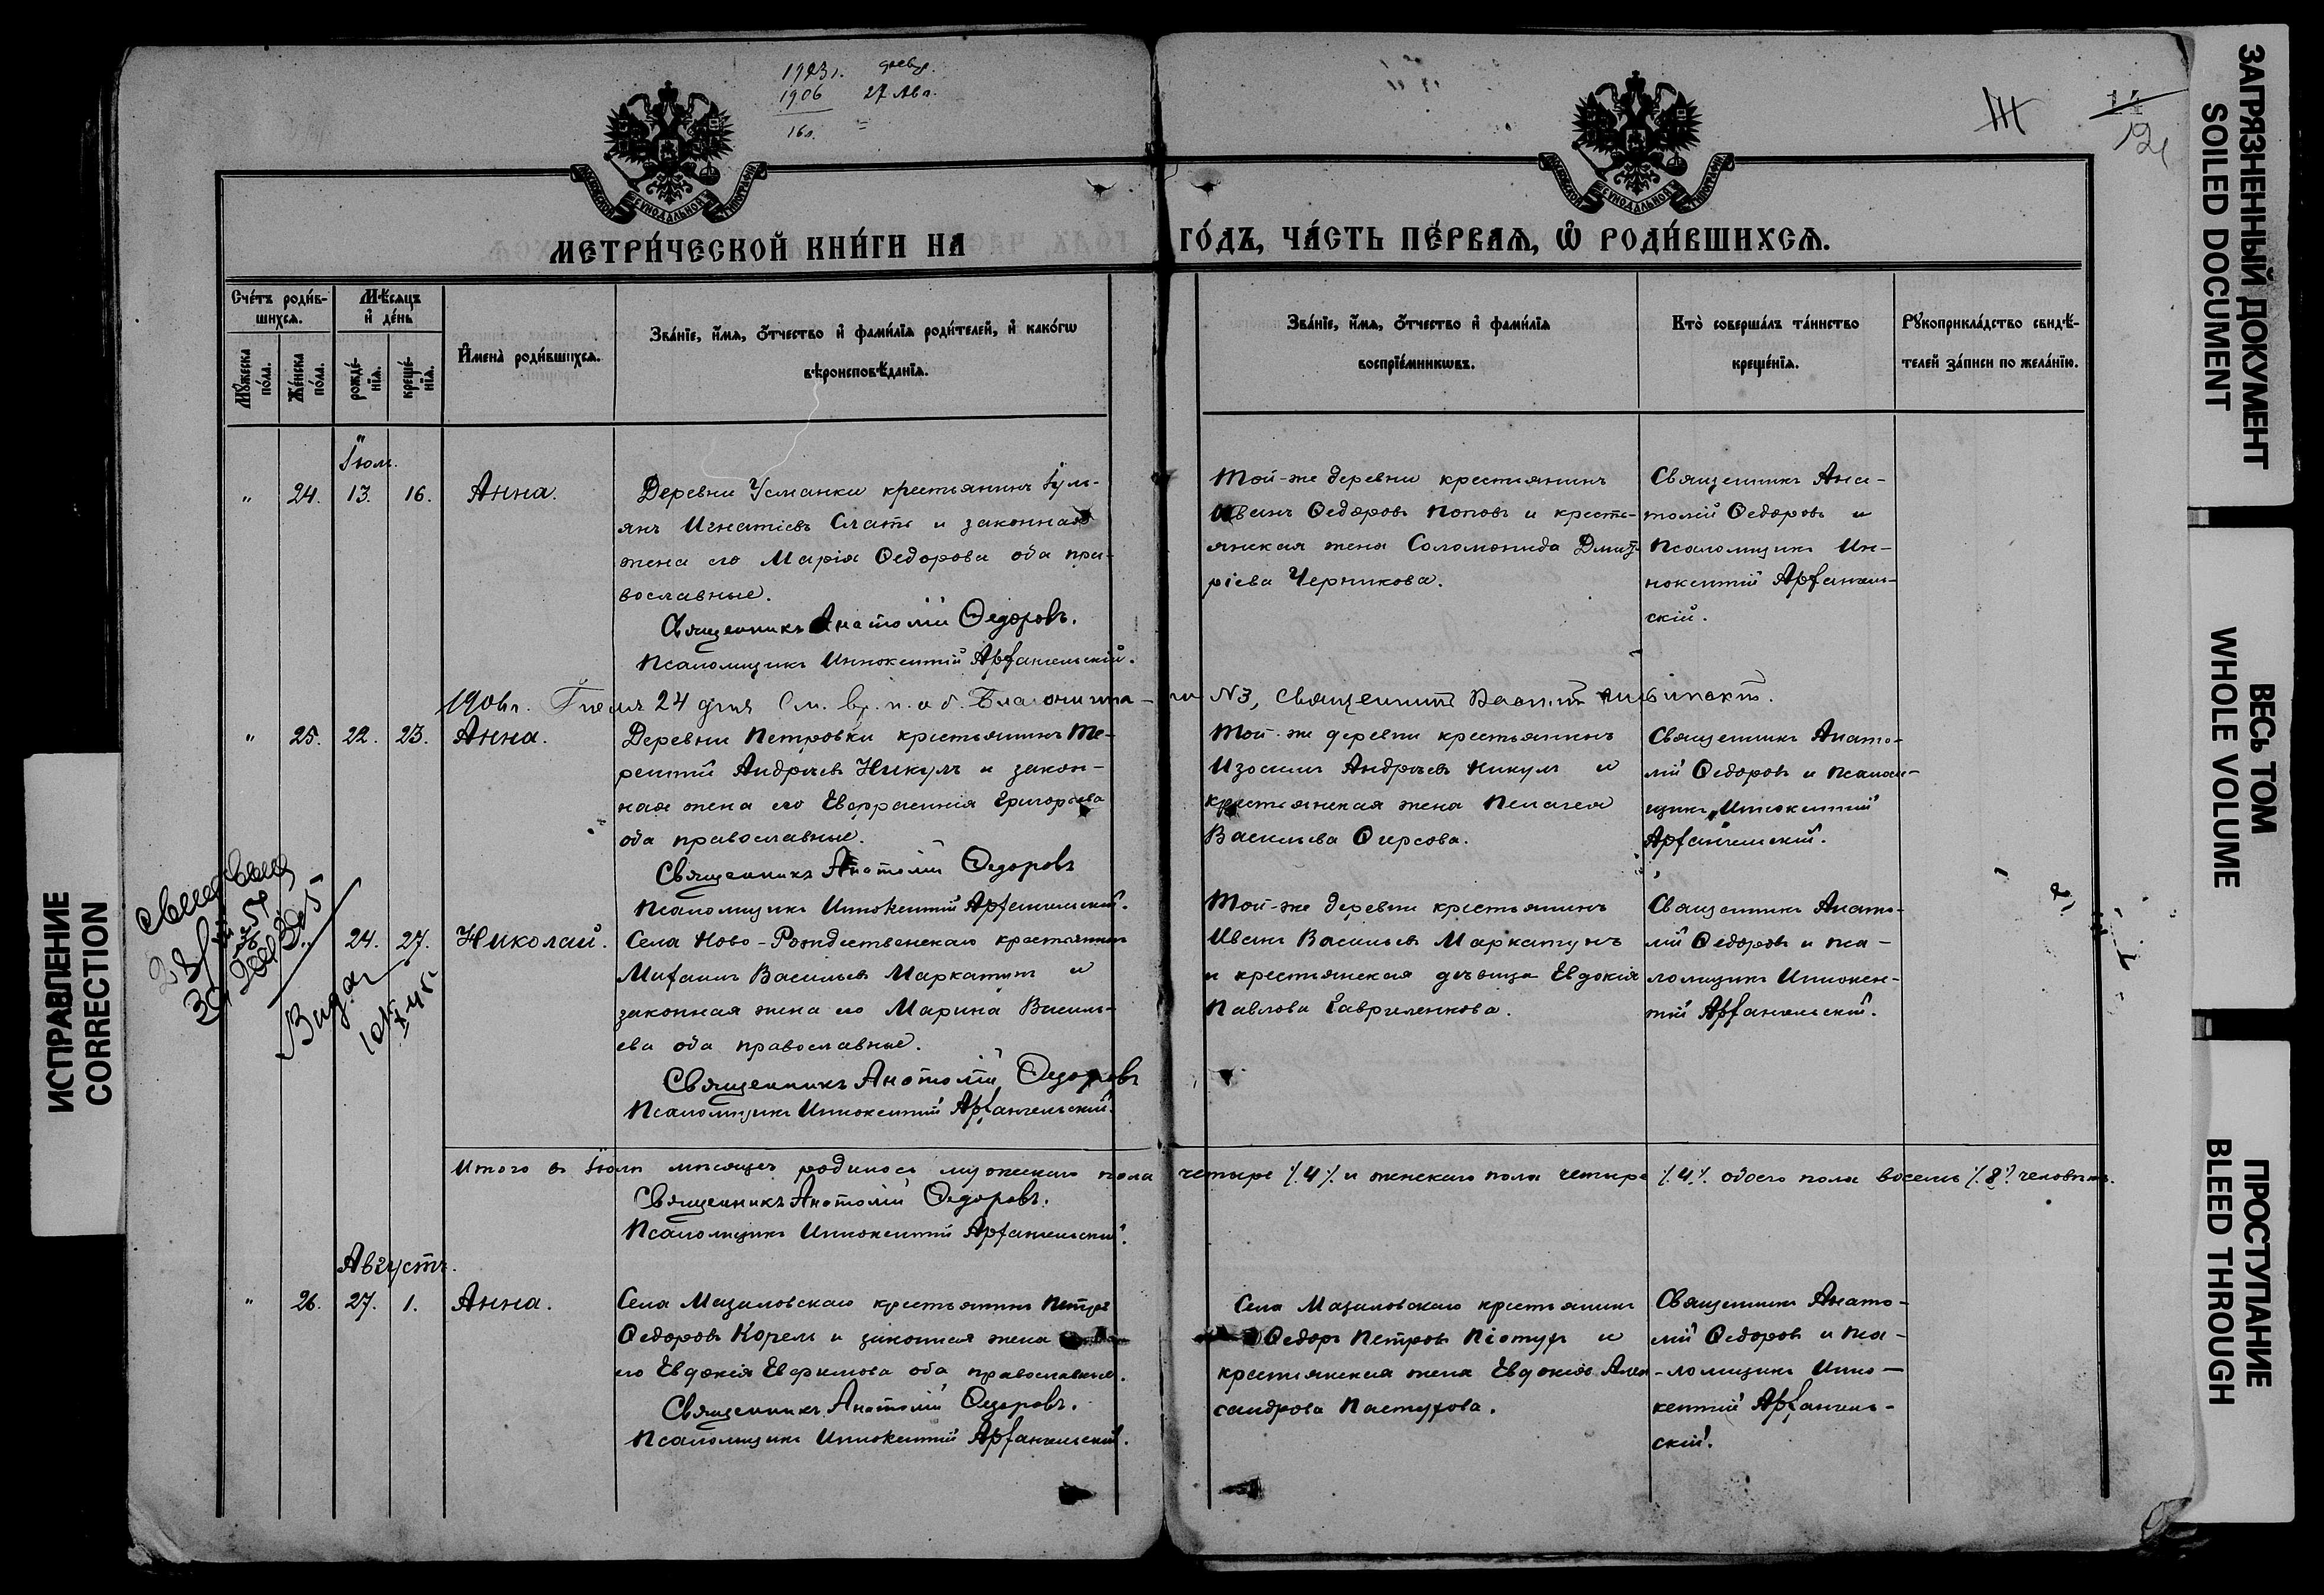 1923 г.
1906 27 Авг.
16 л.
12
МОСКОВСКОЙ СѴНОДАЛЬНОЙ ТИПОГРАФІИ
МОСКОВСКОЙ СѴНОДАЛЬНОЙ ТИПОГРАФІИ
МЕТРИ́ЧЕСКОЙ КНИ́ГИ НА ГО́ДЪ, ЧА́СТЬ ПЕ́РВАѦ, Ѽ РОДИ́ВШИХСѦ.
Сче́тъ роди́в-
шихсѧ.
Мꙋ́жеска по́ла.
Же́нска по́ла.
Мѣ́сѧцъ и де́нь
рожде́-
нїѧ.
креще́-
нїѧ.
Имена̀ роди́вшихсѧ.
Зва́нїе, и́мѧ, о́тчество и фами́лїѧ роди́телей, и како́гѡ
вѣроисповѣ́данїѧ.
Зва́нїе, и́мѧ, о́тчество и фами́лїѧ
воспрїе́мникѡвъ.
Кто̀ соверша́лъ та́инство
креще́нїѧ.
Рꙋкоприкла́дство свидѣ́-
телей за́писи по жела́нїю.
Іюль.
" 24. 13. 16. Анна.
Деревни Усманки крестьянинъ Іул-
янъ Игнатіевъ Слатъ и законная
жена его Марія Ѳедорова оба пра-
вославные.
Священникъ Анатолій Ѳедоровъ.
Псаломщикъ Иннокентій Архангельскій.
Той-же деревни крестьянинъ
Иванъ Ѳедоровъ Поповъ и кресть-
янская жена Соломонида Дмит-
ріева Черникова.
Священникъ Ана-
толій Ѳедоровъ и
Псаломщикъ Ин-
нокентій Архангель-
скій.
1906 г. Іюля 24 дня См. N3, Священникъ
" 25. 22. 23. Анна.
Деревни Петровки крестьянинъ Те-
рентій Андреевъ Никулъ и закон-
ная жена его Евфросинія Григорьева
оба православные.
Священникъ Анатолій Ѳедоровъ
Псаломщикъ Иннокентій Архангельскій.
Той-же деревни крестьянинъ
Изосимъ Андреевъ Никулъ и
крестьянская жена Пелагея
Васильева Ѳирсова.
Священникъ Анато-
лій Ѳедоровъ и Псалом-
щикъ Иннокентій
Архангельскій.
24. 27. Николай.
Села Ново-Рождественскаго крестьянинъ
Михаилъ Васильевъ Маркатунъ и
законная жена его Марина Василь-
ева оба православные.
Священникъ Анатолій Ѳедоровъ
Псаломщикъ Иннокентій Архангельскій.
Той-же деревни крестьянинъ
Иванъ Васильевъ Маркатунъ
и крестьянская дѣвица Евдокія
Павлова Гавриленкова.
Священникъ Анато-
лій Ѳедоровъ и Пса-
ломщикъ Иннокен-
тій Архангельскій.
Итого въ Іюлѣ мѣсяцѣ родилось мужескаго пола четыре /.4/. и женскаго пола четыре /.4/. обоего пола восемь /.8/. человѣкъ.
Священникъ Анатолій Ѳедоровъ.
Псаломщикъ Иннокентій Архангельскій.
Августъ.
" 26. 27. 1. Анна.
Села Мазаловскаго крестьянинъ Петръ
Ѳедоровъ Корель и законная жена
его Евдокія Евфимова оба православные.
Священникъ Анатолій Ѳедоровъ.
Псаломщикъ Иннокентій Архангельскій.
Села Мазаловскаго крестьянинъ
Ѳедоръ Петровъ Пiотухъ и
крестьянская жена Евдокія Алек-
сандрова Пастухова.
Священникъ Анато-
лій Ѳедоровъ и Пса-
ломщикъ Инно-
кентій Архангель-
скій.
ИСПРАВЛЕНИЕ
CORRECTION
ЗАГРЯЗНЕННЫЙ ДОКУМЕНТ
SOILED DOCUMENT
ВЕСЬ ТОМ
WHOLE VOLUME
ПРОСТУПАНИЕ
BLEED THROUGH